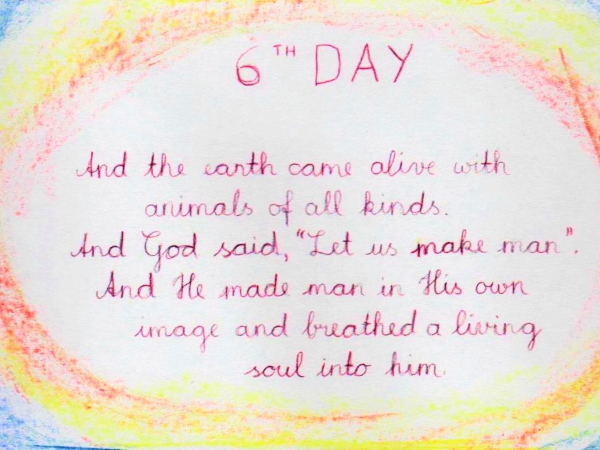 6TH DAY
And the earth came alive with
animals of all kinds.
And God said, "Let us make man".
And He made man in His own
image and breathed a living
soul into him.